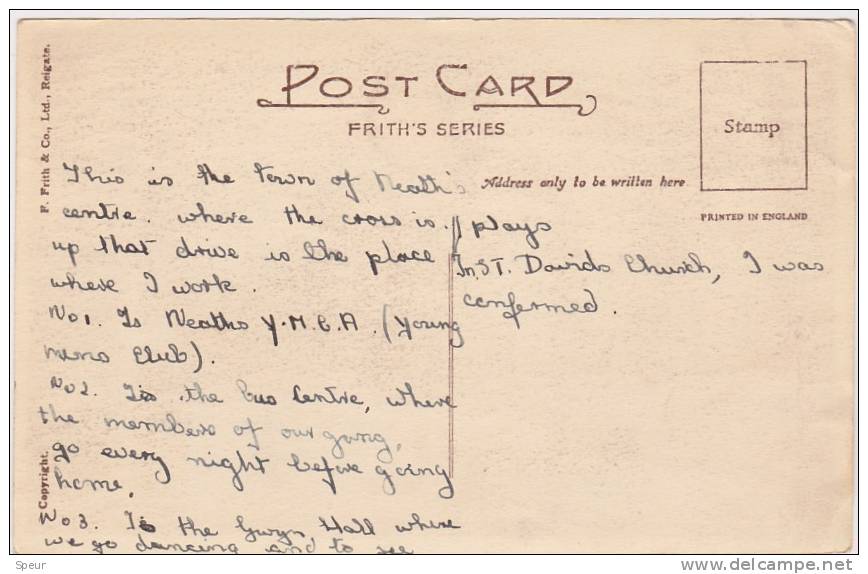 POST CARD
FRITH'S SERIES
Stamp
PRINTED IN ENGLAND
Address only to be written here
F. Frith & Co., Ltd., Reigate.
Copyright.
This is the town of Neath's
centre. where the cross is.
up that drive is the place
where I work.
No 1. Is Neaths Y.M.C.A. (young
mens club).
No 2. Is the bus centre, where
the members of our gang,
go every night before going
home.
No 3. Is the Gwyn Hall where
we go dancing and to see
plays
In ST. Davids Church, I was
confermed.
Speur
www.delcampe.net